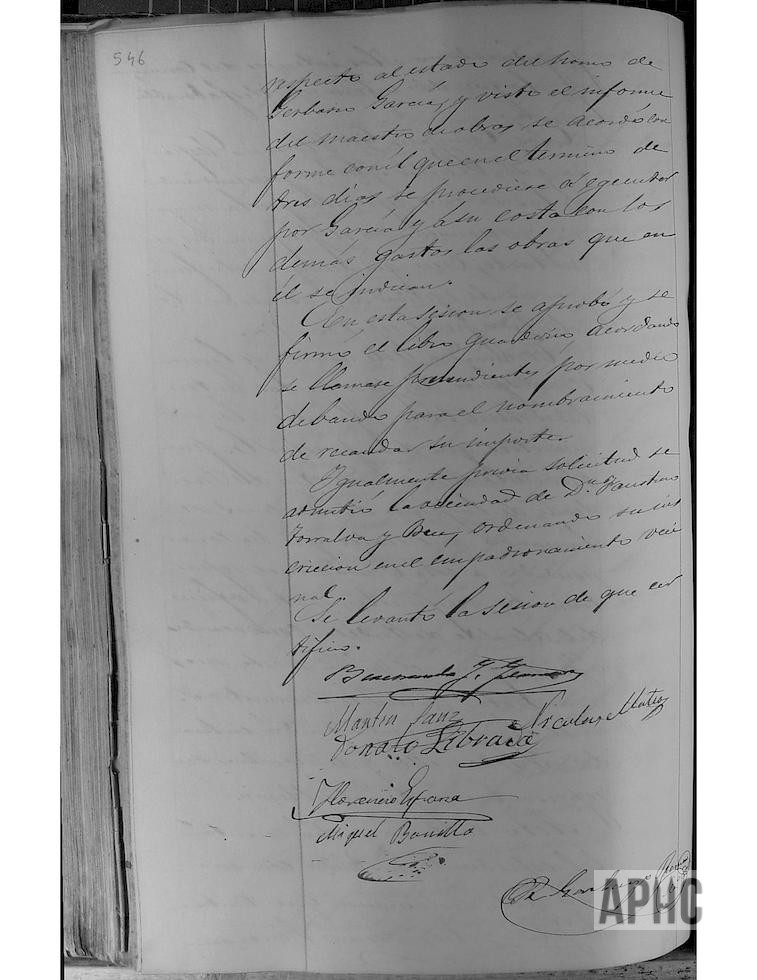 546
respecto al estado del horno de
Gerbasio García, y visto el informe
del maestro de obras se acordó con
forme con él que en el termino de
tres dias se procediese á egecutar
por García y á su costa con los
demás gastos las obras que en
él se indican.
En esta sesion se aprobó y se
firmó el libro acordando
se llamase pretendientes por medio
de bando para el nombramiento
de recaudar su importe.
Igualmente previa solicitud se
admitió la vecindad de Dn. Faustino
Torralva y ordenando su ins
cricion en el empadronamiento veci
nal.
Se levantó la sesion de que cer
tifico.
Martin Sanz
Nicolas Mateo
Donato Librada
Florencio España
Miguel Bonilla
APHC